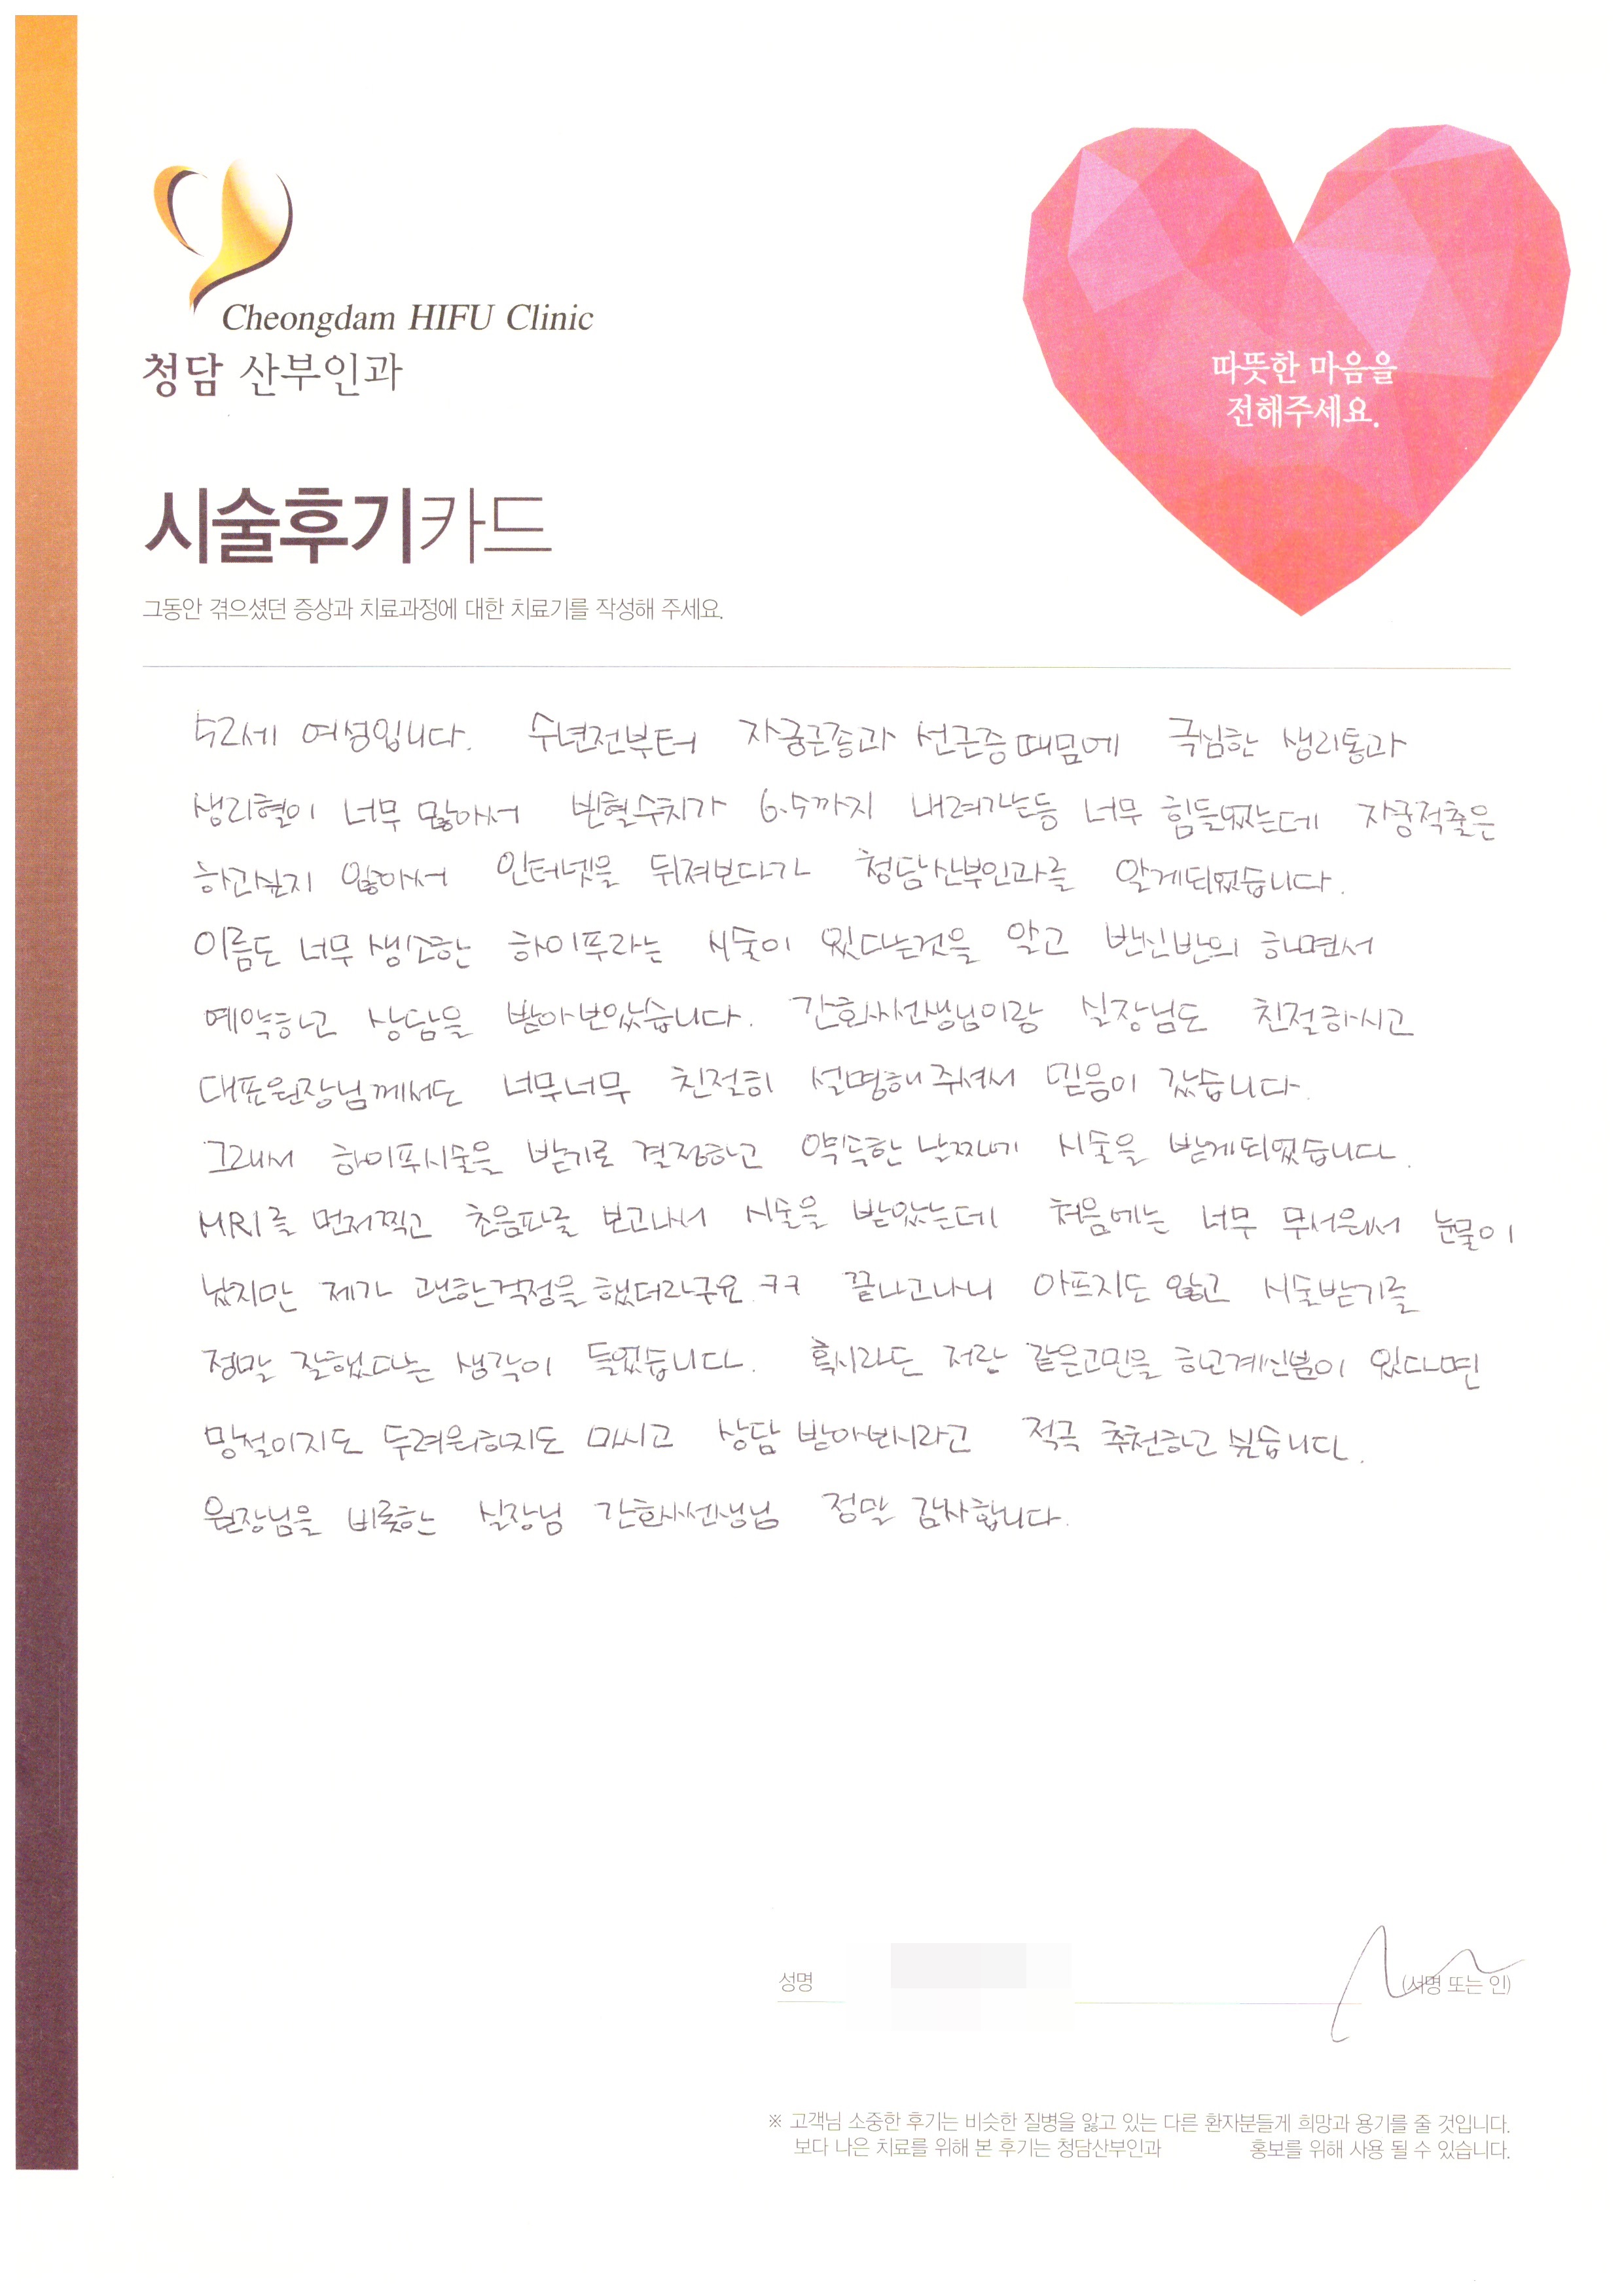 Cheongdam HIFU Clinic
청담 산부인과
따뜻한 마음을
전해주세요.
시술후기카드
그동안 겪으셨던 증상과 치료과정에 대한 치료기를 작성해 주세요.
52세 여성입니다. 수년전부터 자궁근종과 선근증때문에 극심한 생리통과
생리혈이 너무 많아서 빈혈수치가 6.5까지 내려가는등 너무 힘들었는데 자궁적출은
하고싶지 않아서 인터넷을 뒤져보다가 청담산부인과를 알게되었습니다.
이름도 너무 생소한 하이푸라는 시술이 있다는것을 알고 반신반의 하면서
예약하고 상담을 받아보았습니다. 간호사선생님이랑 실장님도 친절하시고
대표원장님께서도 너무너무 친절히 설명해주셔서 믿음이 갔습니다.
그래서 하이푸시술을 받기로 결정하고 약속한 날짜에 시술을 받게되었습니다.
MRI를 먼저찍고 초음파를 보고나서 시술을 받았는데 처음에는 너무 무서워서 눈물이
났지만 제가 괜한걱정을 했더라구요 ㅋㅋ 끝나고나니 아프지도 않고 시술받기를
정말 잘했다는 생각이 들었습니다. 혹시라도 저랑 같은고민을 하고계신분이 있다면
망설이지도 두려워하지도 마시고 상담 받아보시라고 적극 추천하고 싶습니다.
원장님을 비롯한 실장님 간호사선생님 정말 감사합니다.
성명
(서명 또는 인)
※ 고객님 소중한 후기는 비슷한 질병을 앓고 있는 다른 환자분들게 희망과 용기를 줄 것입니다.
보다 나은 치료를 위해 본 후기는 청담산부인과 홍보를 위해 사용 될 수 있습니다.